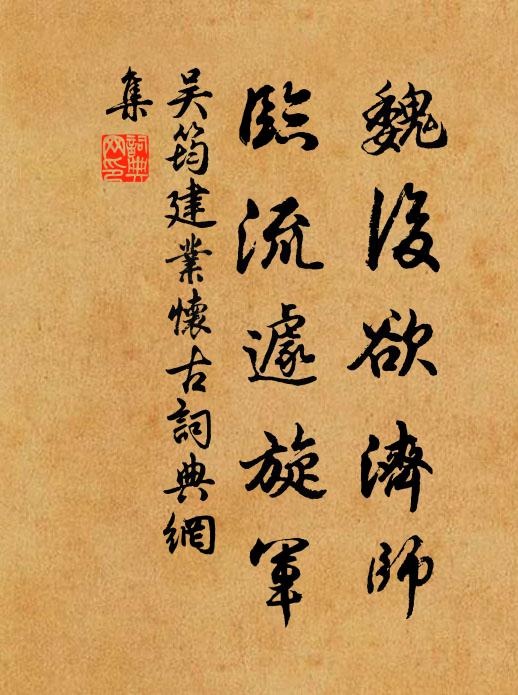 魏後欲濟師
臨流遽旋軍
吳筠建業懷古詞典網
集
詞典
网印